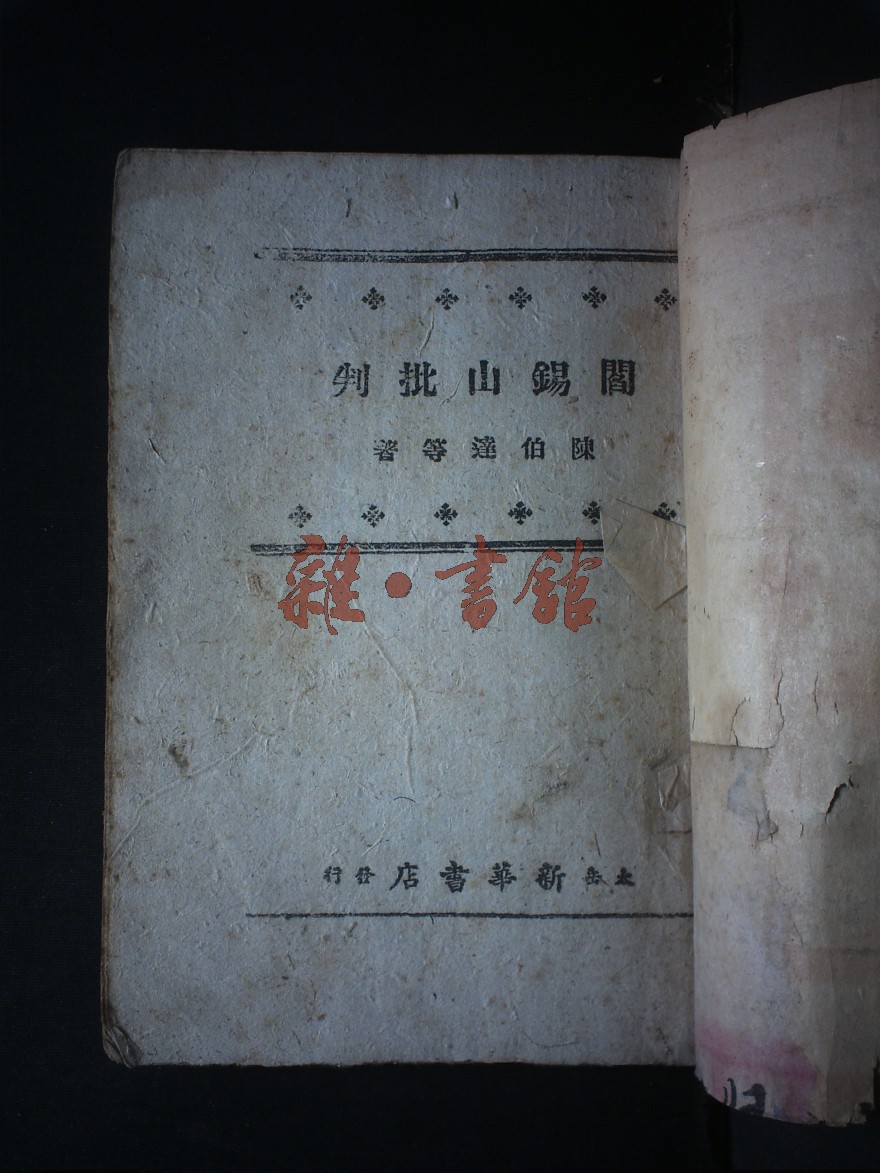 閻錫山批判
陳伯達等著
雜·書館
太岳新華書店發行